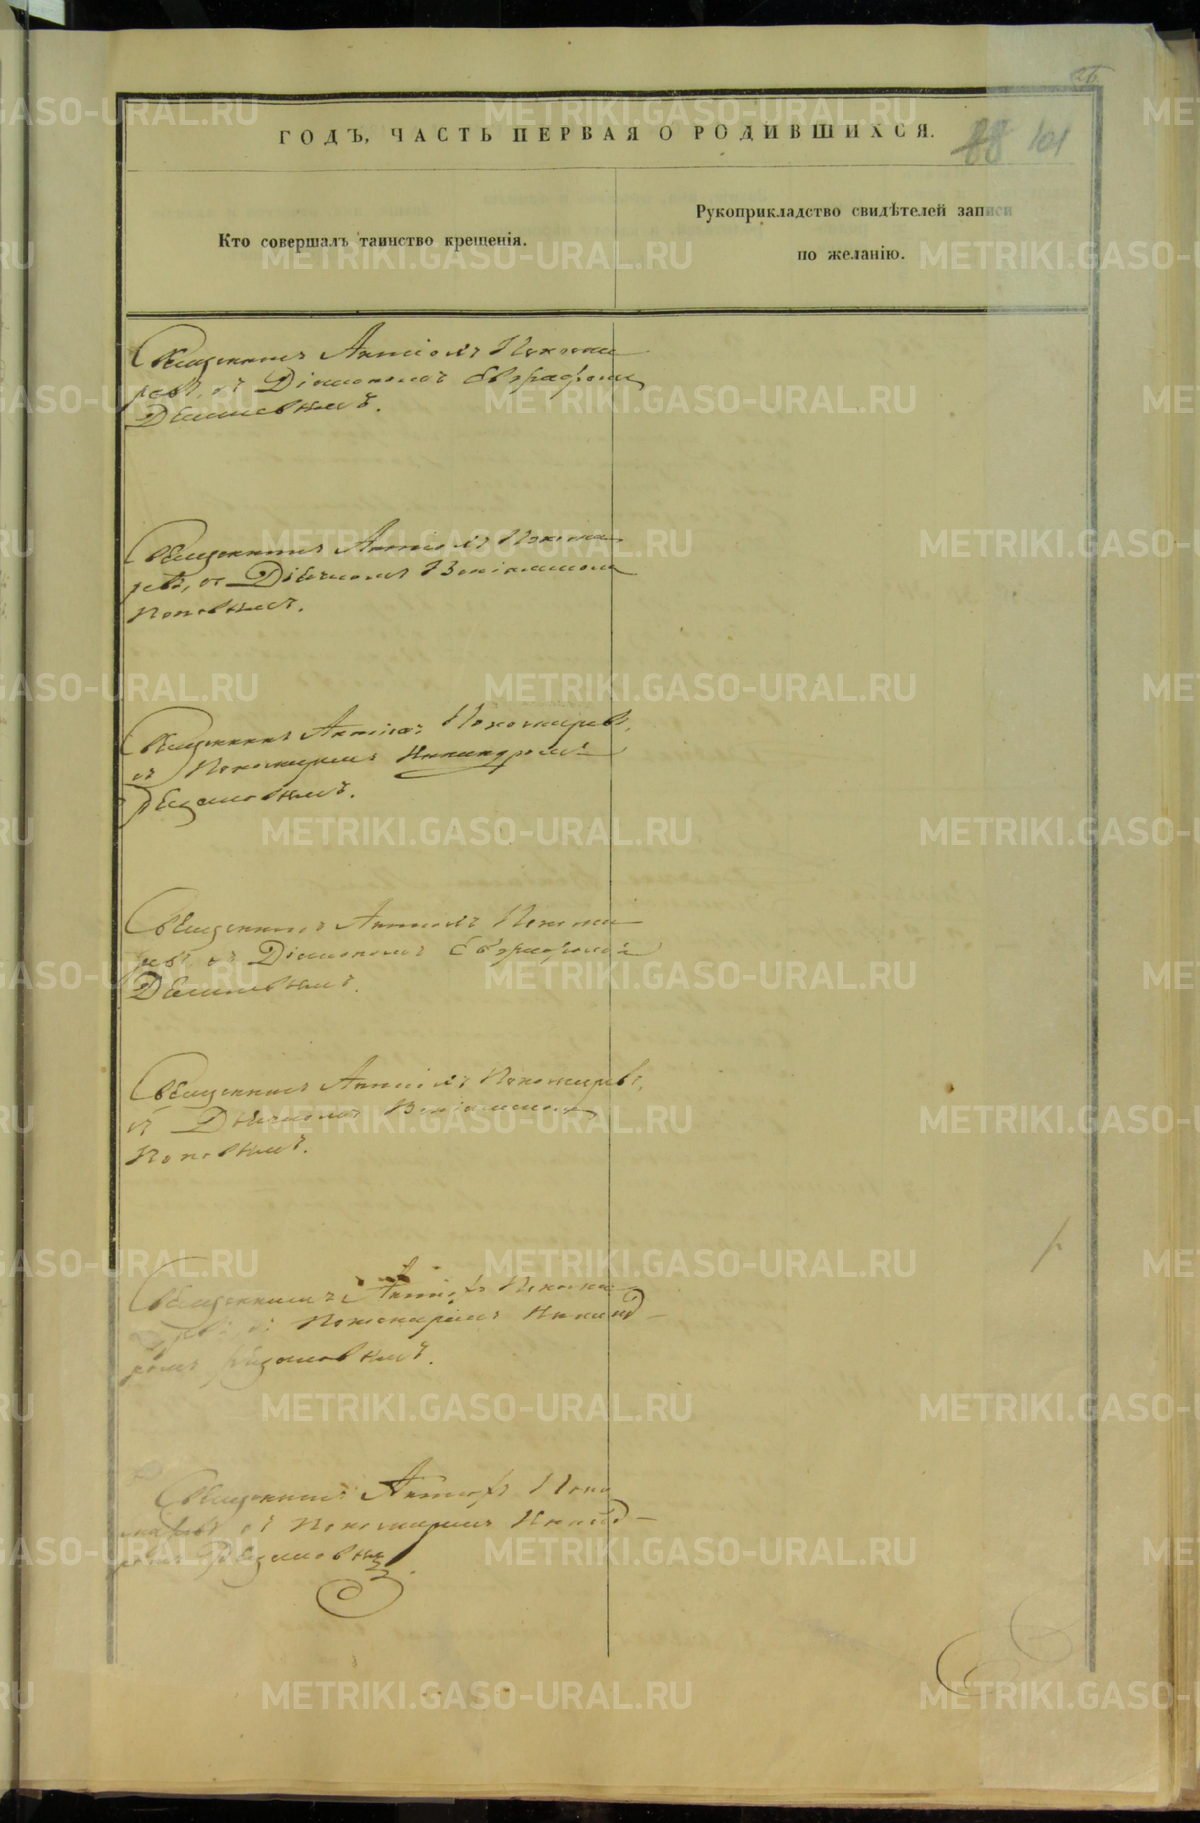 ГОДЪ, ЧАСТЬ ПЕРВАЯ О РОДИВШИХСЯ.
88 101
Кто совершалъ таинство крещенія.
Рукоприкладство свидѣтелей записи
по желанію.
Священникъ Антіохъ Понома
ревъ, съ Діакономъ Евграфомъ
Священникъ Антіохъ Понома
ревъ, съ Дьячкомъ Веніаминомъ
Поповымъ.
Священникъ Антіохъ Пономаревъ,
съ Пономаремъ Никандромъ
Священникъ Антіохъ Понома
ревъ, съ Діакономъ Евграфомъ
Священникъ Антіохъ Пономаревъ,
съ Дьячкомъ Веніаминомъ
Поповымъ.
Священникъ Антіохъ Понома
ревъ, съ Пономаремъ Никанд
ромъ
Священникъ Антіохъ Поно
маревъ съ Пономаремъ Никанд
ромъ
METRIKI.GASO-URAL.RU